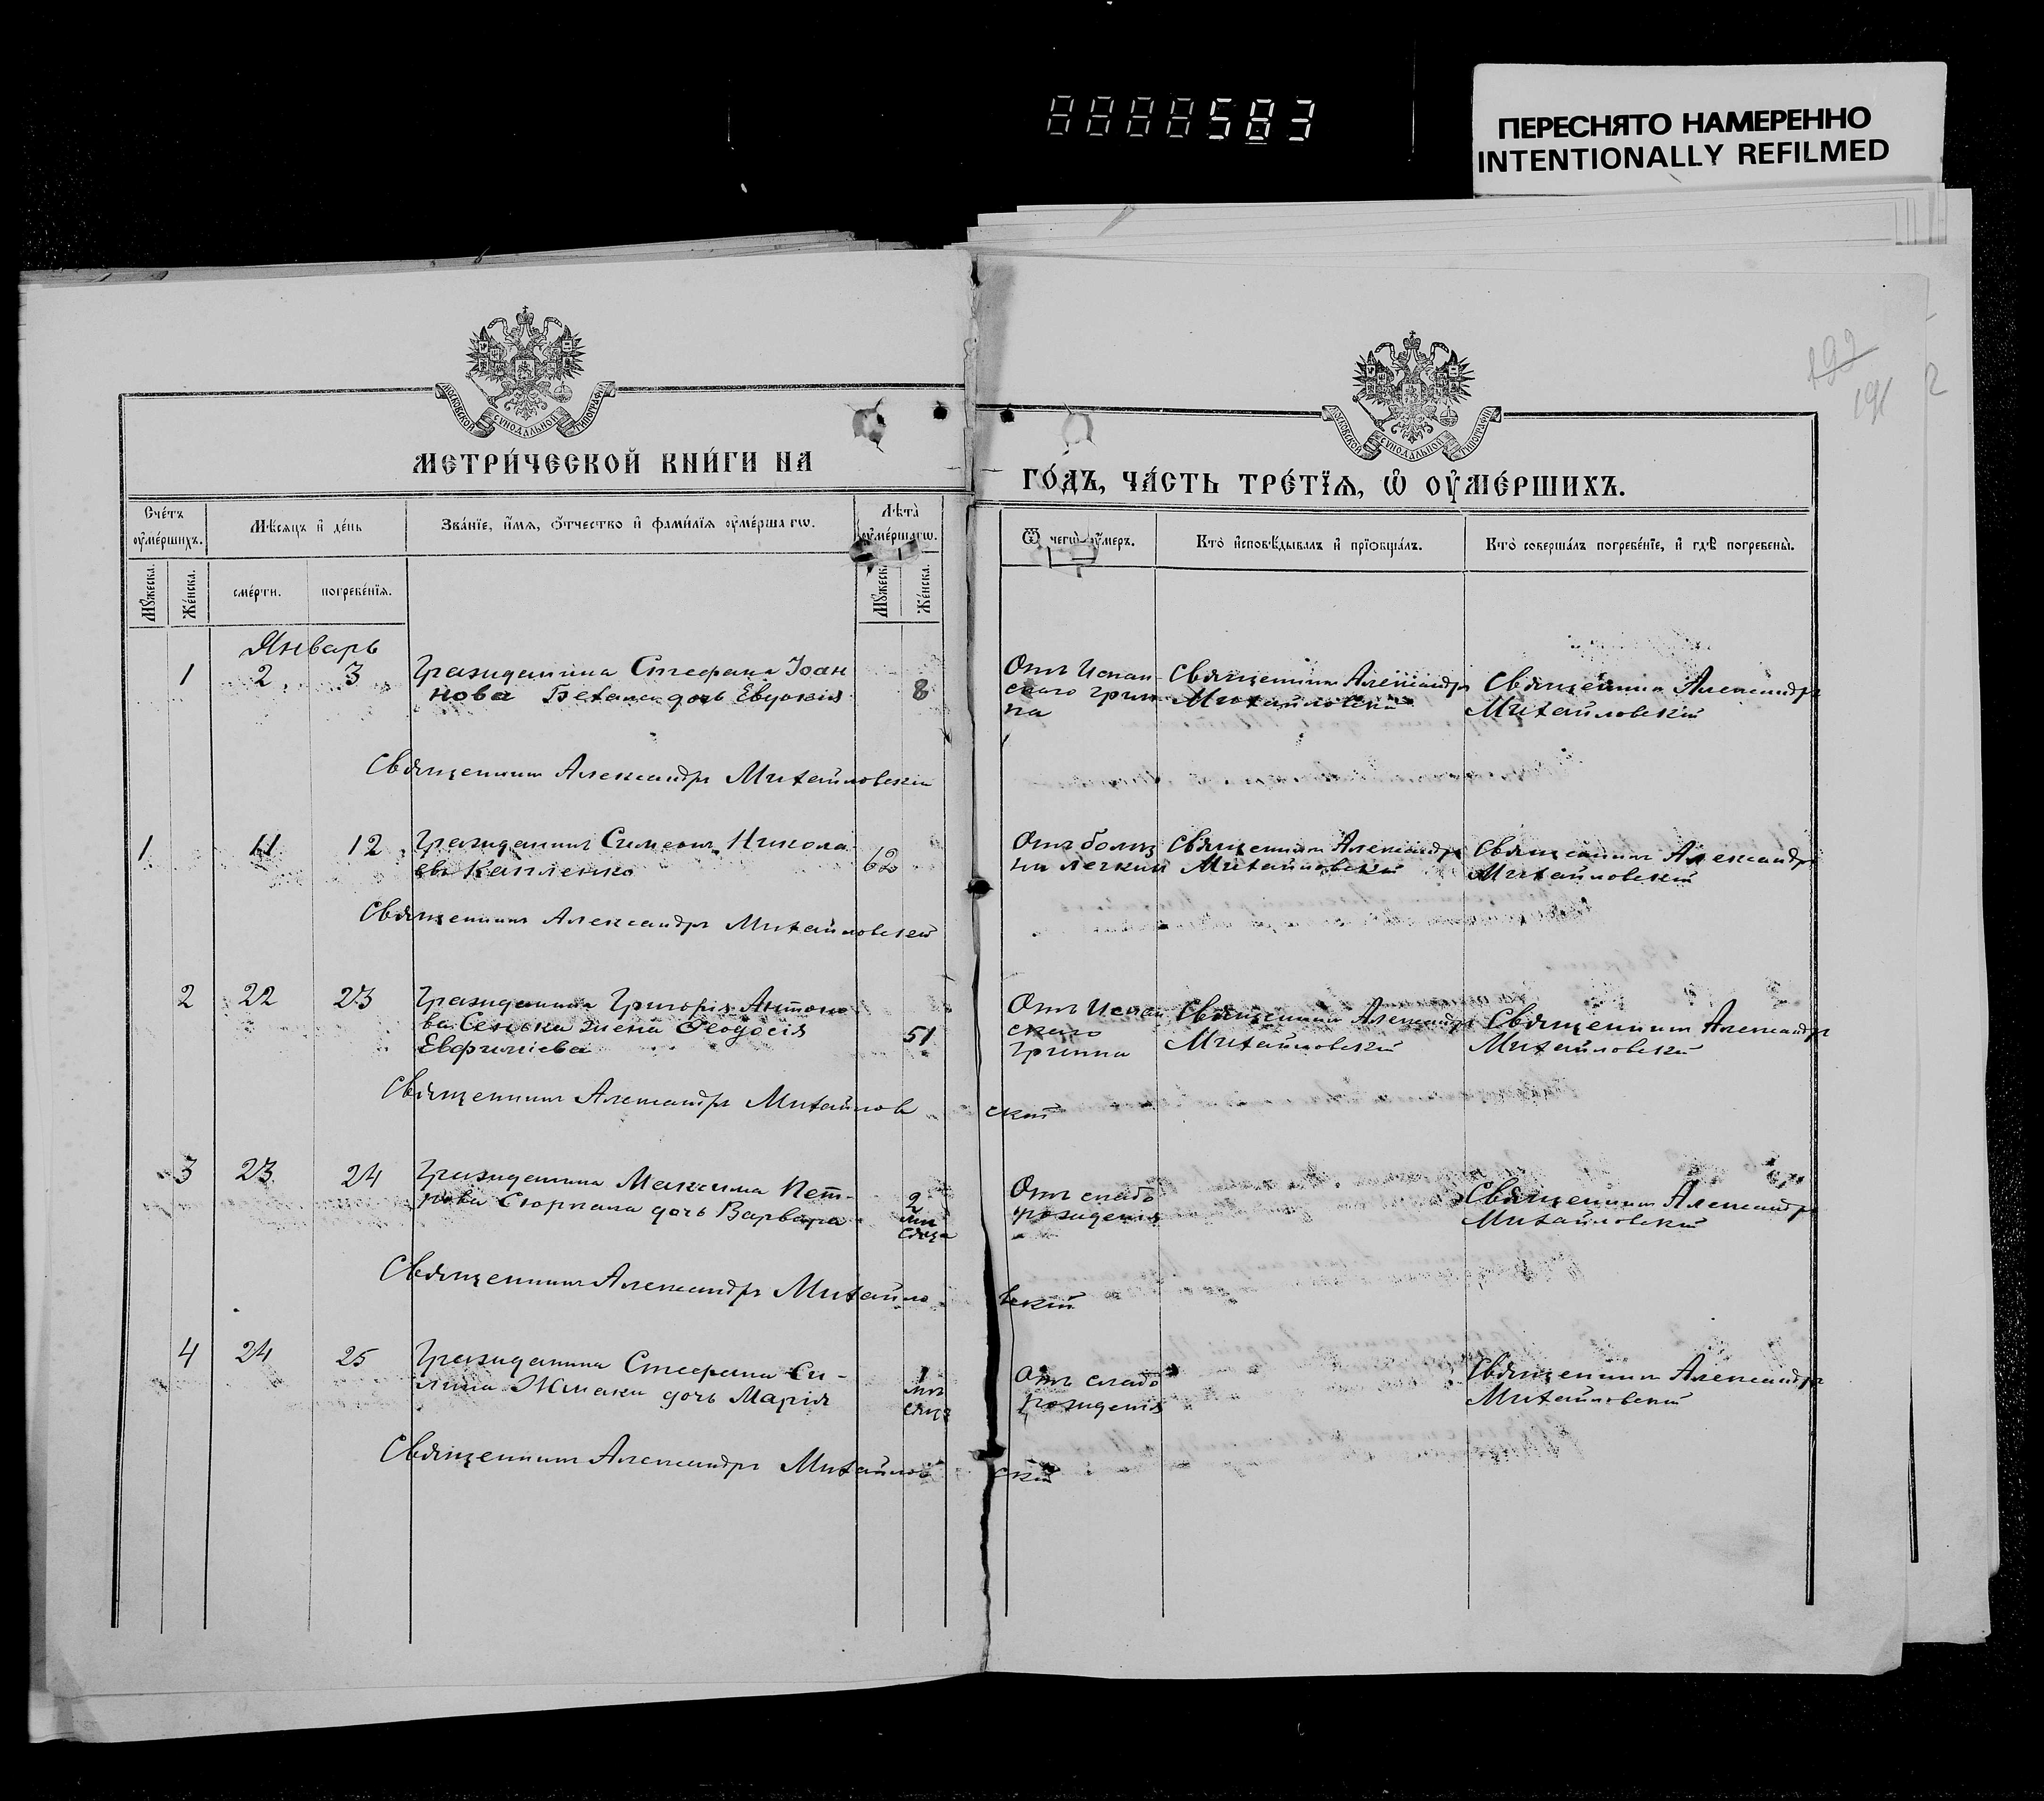 0000583
ПЕРЕСНЯТО НАМЕРЕННО
INTENTIONALLY REFILMED
192
191
МОСКОВСКОЙ СѴНОДАЛЬНОЙ ТИПОГРАФІИ
МОСКОВСКОЙ СѴНОДАЛЬНОЙ ТИПОГРАФІИ
МЕТРИ́ЧЕСКОЙ КНИ́ГИ НА
ГО́ДЪ, ЧА́СТЬ ТРЕ́ТЇѦ, Ѽ ОУ҆МЕ́РШИХЪ.
Сче́тъ оу҆ме́ршихъ.
Мѣ́сяцъ и҆ де́нь
Зва́нїе, и҆́мѧ, ѻ҆́тчество и҆ фами́лїѧ оу҆ме́ршагѡ.
Лѣ́та оу҆ме́ршагѡ.
Ѿ чегѡ̀ оу҆́меръ.
Кто̀ и҆сповѣ́дывалъ и҆ прїѻбща́лъ.
Кто̀ соверша́лъ погребе́нїе, и҆ гдѣ̀ погребены̀.
Мꙋ́жеска.
Же́нска.
сме́рти.
погребе́нїѧ.
Мꙋ́жеска.
Же́нска.
Январь
1 2 3 Гражданина Стефана Іоан
нова дочь Евдокія 8
Отъ Испан
скаго грип
па
Священникъ Александръ
Михайловскій
Священникъ Александръ
Михайловскій
Священникъ Александръ Михайловскій
1 11 12 Гражданинъ Симеонъ Никола
евъ Капленко 62
Отъ болѣз
ни легкихъ
Священникъ Александръ
Михайловскій
Священникъ Александръ
Михайловскій
Священникъ Александръ Михайловскій
2 22 23 Гражданина Григорія Антоно
ва Сенька жена Ѳеодосія
Евфиміева 51
Отъ Испан
скаго
Гриппа
Священникъ Александръ
Михайловскій
Священникъ Александръ
Михайловскій
Священникъ Александръ Михайлов
скій
3 23 24 Гражданина Максима Пет-
рова дочь Варвара 2
мѣ
сяца
Отъ слабо
рожденія
Священникъ Александръ
Михайловскій
Священникъ Александръ Михайло
вскій
4 24 25 Гражданина Стефана Си-
лина дочь Марія 1
мѣ
сяцъ
Отъ слабо
рожденія
Священникъ Александръ
Михайловскій
Священникъ Александръ Михайлов
скій